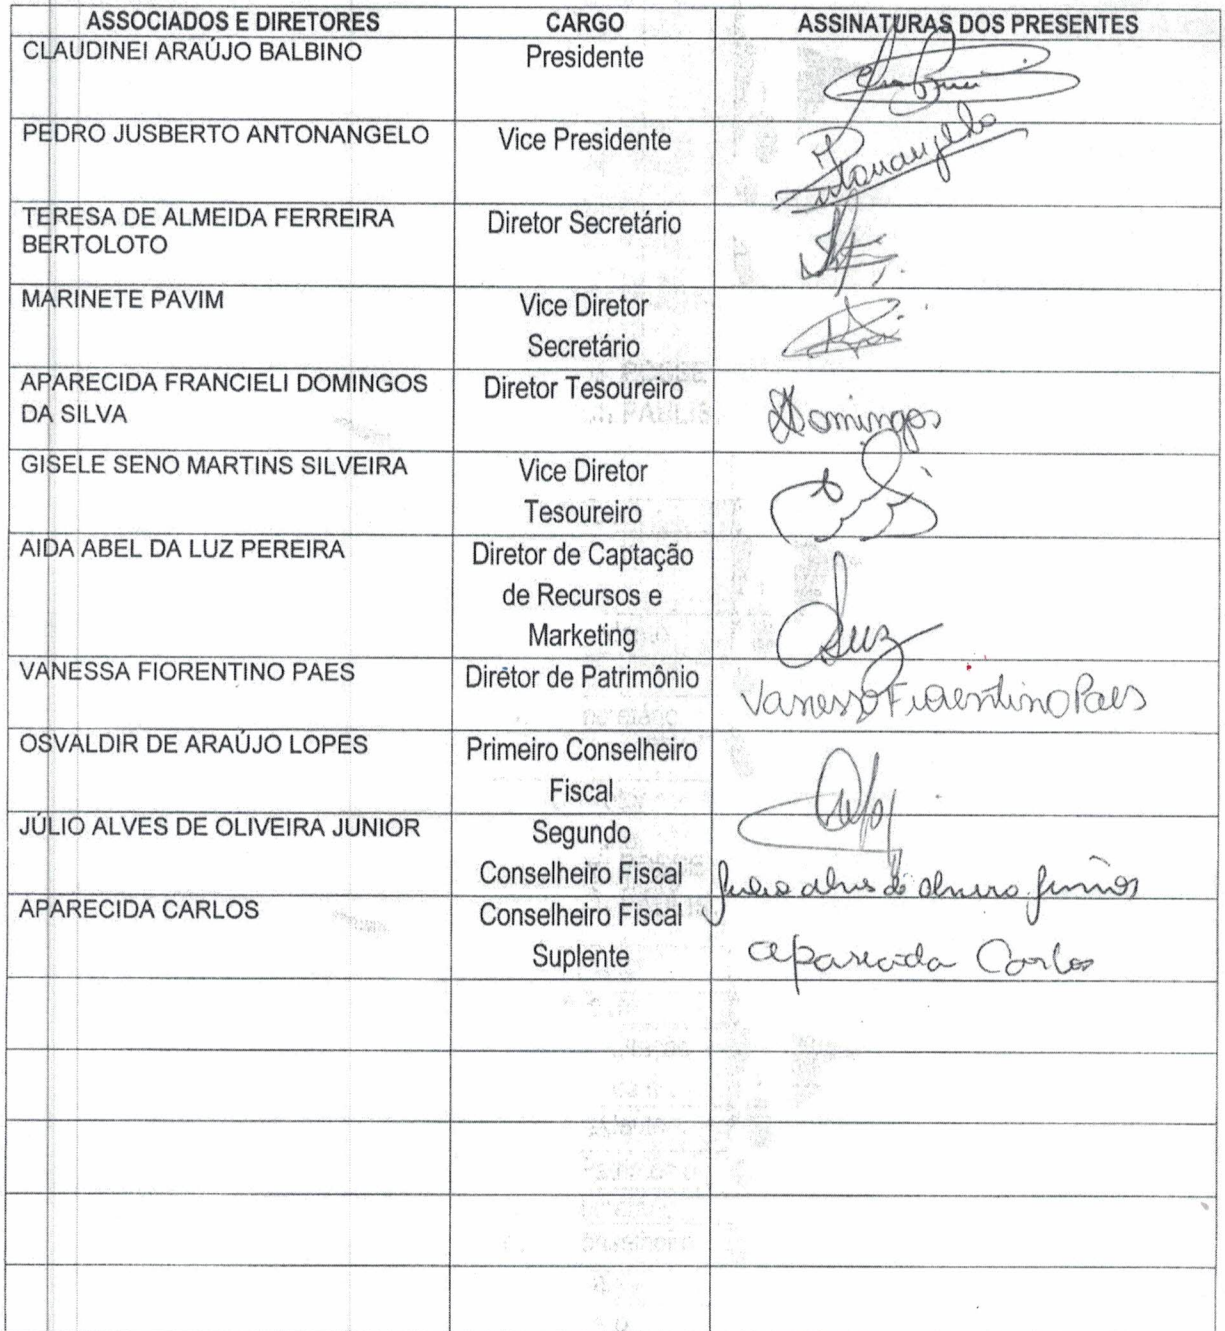 ASSOCIADOS E DIRETORES CARGO ASSINATURAS DOS PRESENTES
CLAUDINEI ARAÚJO BALBINO Presidente
PEDRO JUSBERTO ANTONANGELO Vice Presidente Antonangelo
TERESA DE ALMEIDA FERREIRA Diretor Secretário
BERTOLOTO
MARINETE PAVIM Vice Diretor
Secretário
APARECIDA FRANCIELI DOMINGOS Diretor Tesoureiro
DA SILVA Domingos
GISELE SENO MARTINS SILVEIRA Vice Diretor
Tesoureiro
AIDA ABEL DA LUZ PEREIRA Diretor de Captação
de Recursos e
Marketing Luz
VANESSA FIORENTINO PAES Diretor de Patrimônio Vanessa Fiorentino Paes
OSVALDIR DE ARAÚJO LOPES Primeiro Conselheiro
Fiscal
JÚLIO ALVES DE OLIVEIRA JUNIOR Segundo
Conselheiro Fiscal Julio Alves de Oliveira Junior
APARECIDA CARLOS Conselheiro Fiscal
Suplente Aparecida Carlos